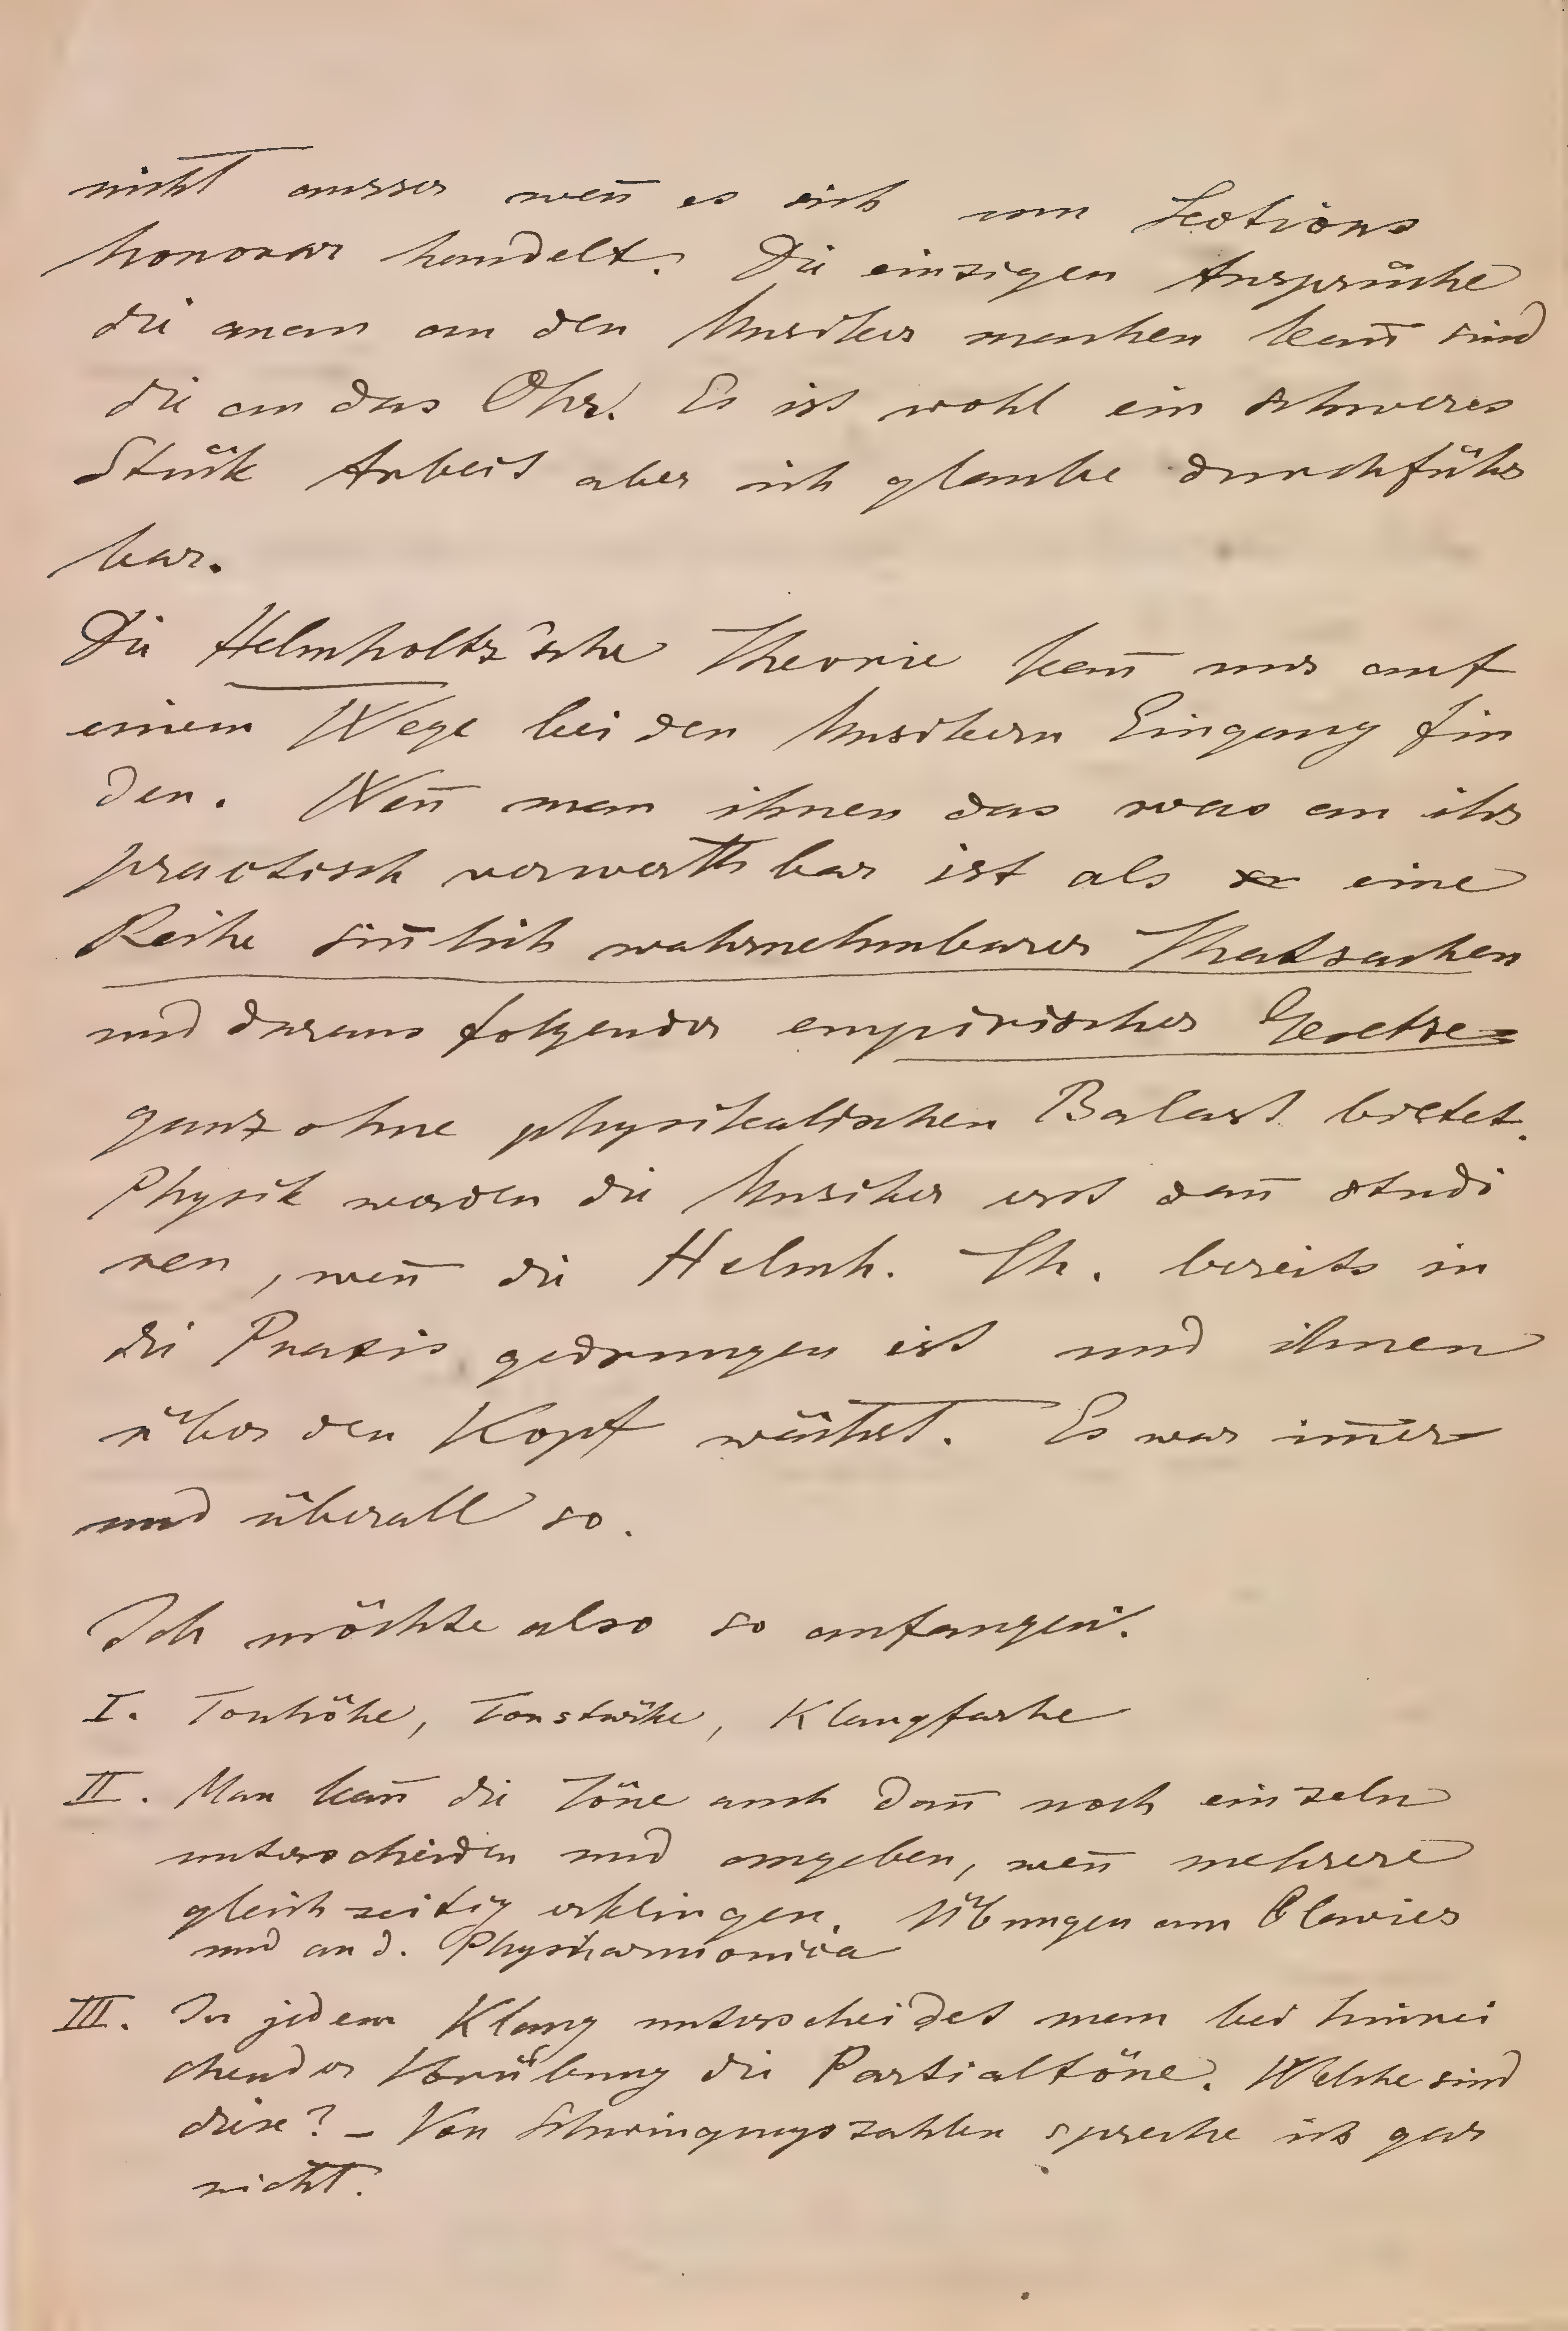 nicht ausser wen̄ es sich um Lections
honorar handelt. Die einzigen Ansprüche
die man an den Musiker machen kan̄ sind
die an das Ohr. Es ist wohl ein schweres
Stück Arbeit aber ich glaube durchführ
bar.
Die Helmholtz'sche Theorie kan̄ nur auf
einem Wege bei den Musikern Eingang fin
den. Wen̄ man ihnen das was an ihr
practisch verwerthbar ist als eine
Reihe sin̄lich wahrnehmbarer Thatsachen
und daraus folgender empirischer Gesetze
ganz ohne physikalischen Balast bietet.
Physik werden die Musiker erst dan̄ studi
ren, wen̄ die Helmh. Th. bereits in
die Praxis gedrungen ist und ihnen
über den Kopf wächst. Es war im̄er
und überall so.
Ich möchte also so anfangen.
I. Tonhöhe, Tonstärke, Klangfarbe
II. Man kan̄ die Töne auch dan̄ noch einzeln
unterscheiden und angeben, wen̄ mehrere
gleichzeitig erklingen. Übungen am Clavier
und an d. Physharmonica
III. In jedem Klang unterscheidet man bei hinrei
chender Vorübung die Partialtöne. Welche sind
diese? – Von Schwingungszahlen spreche ich gar
nicht.